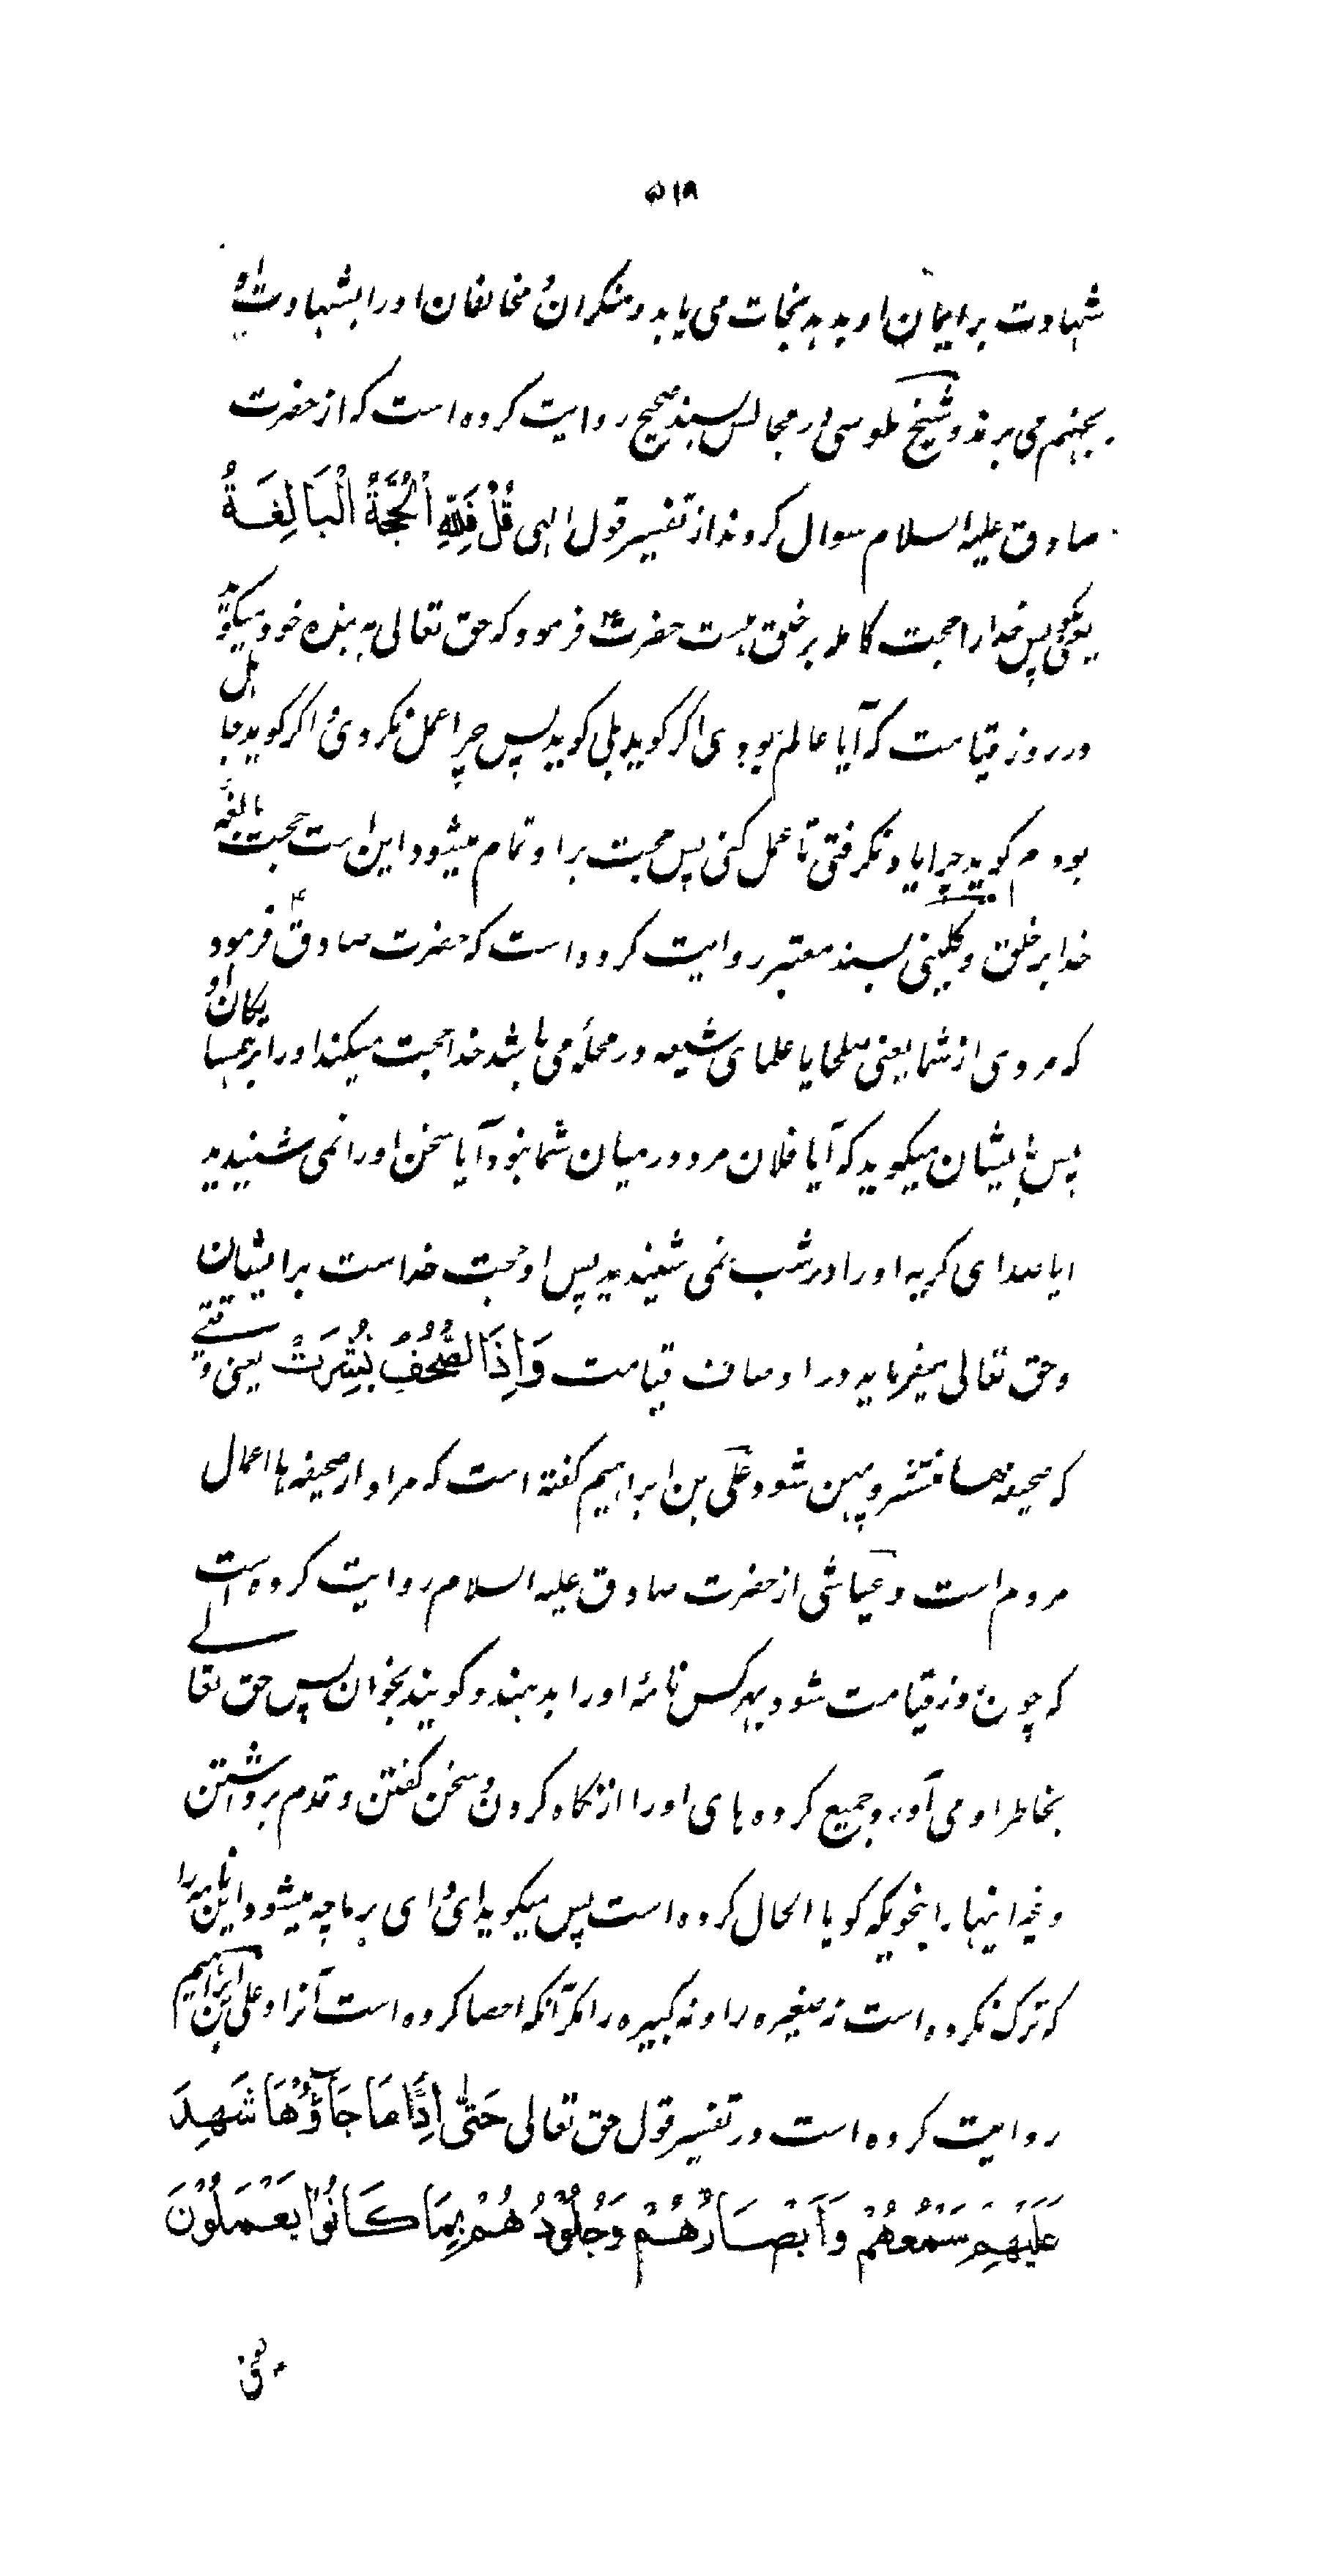 ۵۱۸
شهادت بر ایمان او بدهد نجات می یابد و منکران و مخالفان او را بشهادت او
بجهنم می برند و شیخ طوسی در مجالس بسند صحیح روایت کرده است که از حضرت
صادق علیه السلام سوال کردند از تفسیر قول الهی قُلْ فَلِلّٰهِ الْحُجَّةُ الْبَالِغَةُ
یعنی بگو پس خدا را حجت کامله بر خلق هست حضرت فرمود که حق تعالی به بنده خود میگوید
در روز قیامت که آیا عالم بودی اگر گوید بلی گوید پس چرا عمل نکردی و اگر گوید جاهل
بودم گوید چرا یاد نگرفتی تا عمل کنی پس حجت بر او تمام میشود این است حجت بالغهٔ
خدا بر خلق و کلینی بسند معتبر روایت کرده است که حضرت صادقؑ فرمود
که مردی از شما یعنی صلحا یا علمای شیعه در محلهٔ می باشد خدا حجت میکند او را بر همسایگان او
پس بایشان میگوید که آیا فلان مرد در میان شما نبود آیا سخن او را نمی شنیدید
ایا صدای گریه او را در شب نمی شنیدید پس او حجت خداست بر ایشان
و حق تعالی میفرماید در اوصاف قیامت وَاِذَا الصُّحُفُ نُشِرَتْ یعنی وقتیے
که صحیفه ها منتشر و پهن شود علی بن ابراهیم گفته است که مراد از صحیفه ها اعمال
مردم است و عیاشی از حضرت صادق علیه السلام روایت کرده است
که چون روز قیامت شود بهر کس نامهٔ او را بدهند و گویند بخوان پس حق تعالے
بخاطر او می آورد جمیع کرده های او را از نگاه کردن و سخن گفتن و قدم برداشتن
و غیر اینها را بنحویکه گویا الحال کرده است پس میگوید ای وای بر ما چه میشود این نامه را
که ترک نکرده است نه صغیره را و نه کبیره را مگر آنکه احصا کرده است آنرا و علی بن ابراهیم
روایت کرده است در تفسیر قول حق تعالی حَتّٰی اِذَا مَا جَآؤُهَا شَهِدَ
عَلَيْهِمْ سَمْعُهُمْ وَاَبْصَارُهُمْ وَجُلُوْدُهُمْ بِمَا كَانُوْا يَعْمَلُوْنَ
یعنی